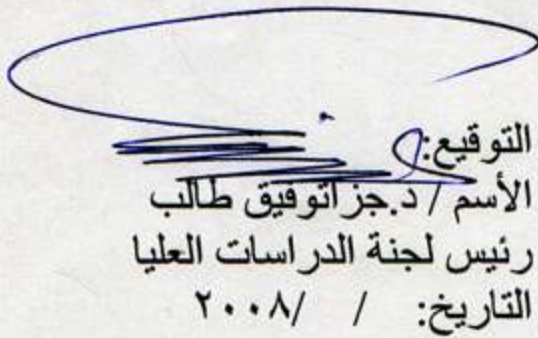 التوقيع:
الأسم / د.جزاتوفيق طالب
رئيس لجنة الدراسات العليا
التاريخ: / /٢٠٠٨